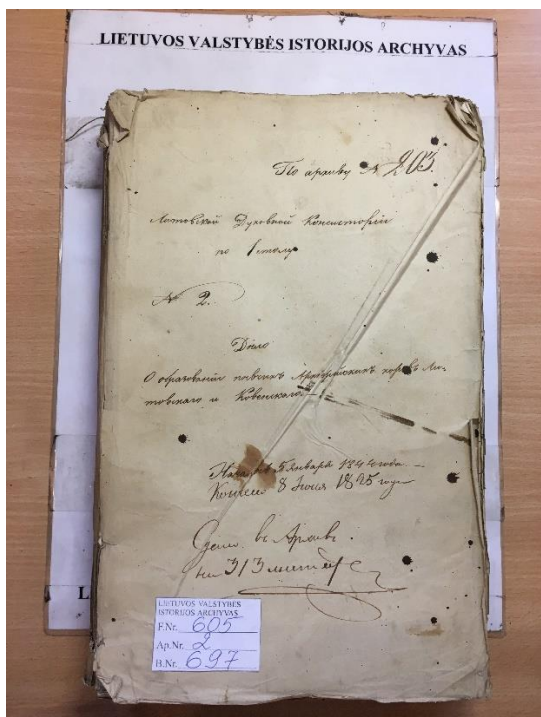 LIETUVOS VALSTYBĖS ISTORIJOS ARCHYVAS
По архиву № 203.
Литовской Духовной Консисторіи
по 1 столу
№ 2.
Дѣло
О образованіи Архіерейскихъ хоровъ Ли-
товскаго и Ковенскаго
5 Января 184 года
8 Іюля года
въ Архивъ
на 313
L
LIETUVOS VALSTYBĖS
ISTORIJOS ARCHYVAS
F.Nr. 605
Ap.Nr. 2
B.Nr. 697